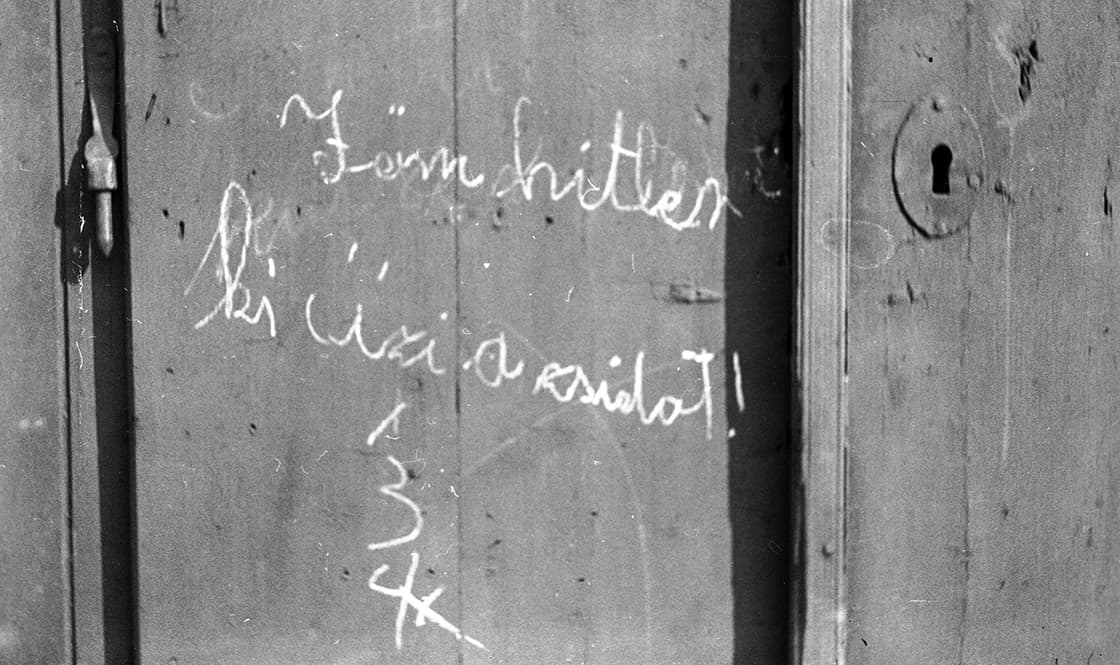 Jön hitler
ki űzi a zsidot!
1
3
4x